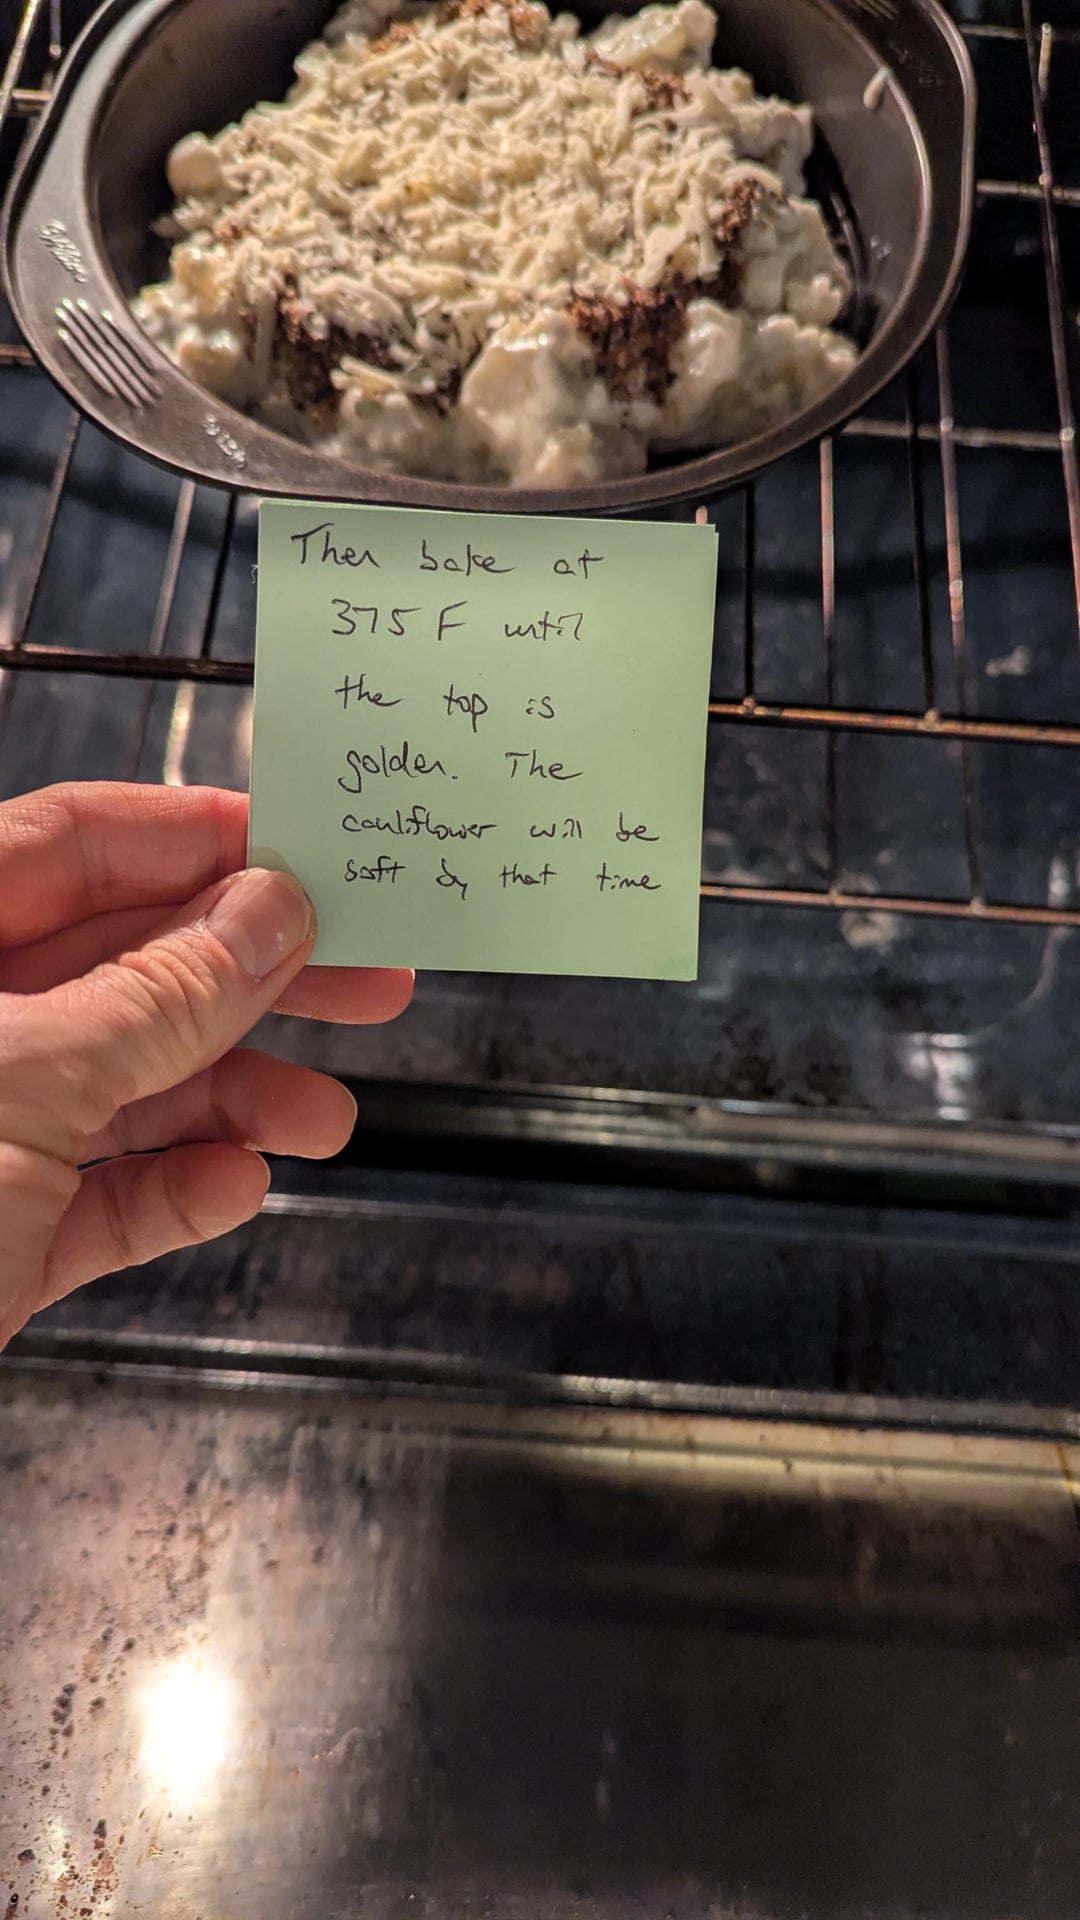 Wilton
Then bake at
375 F until
the top is
golden. The
cauliflower will be
soft by that time